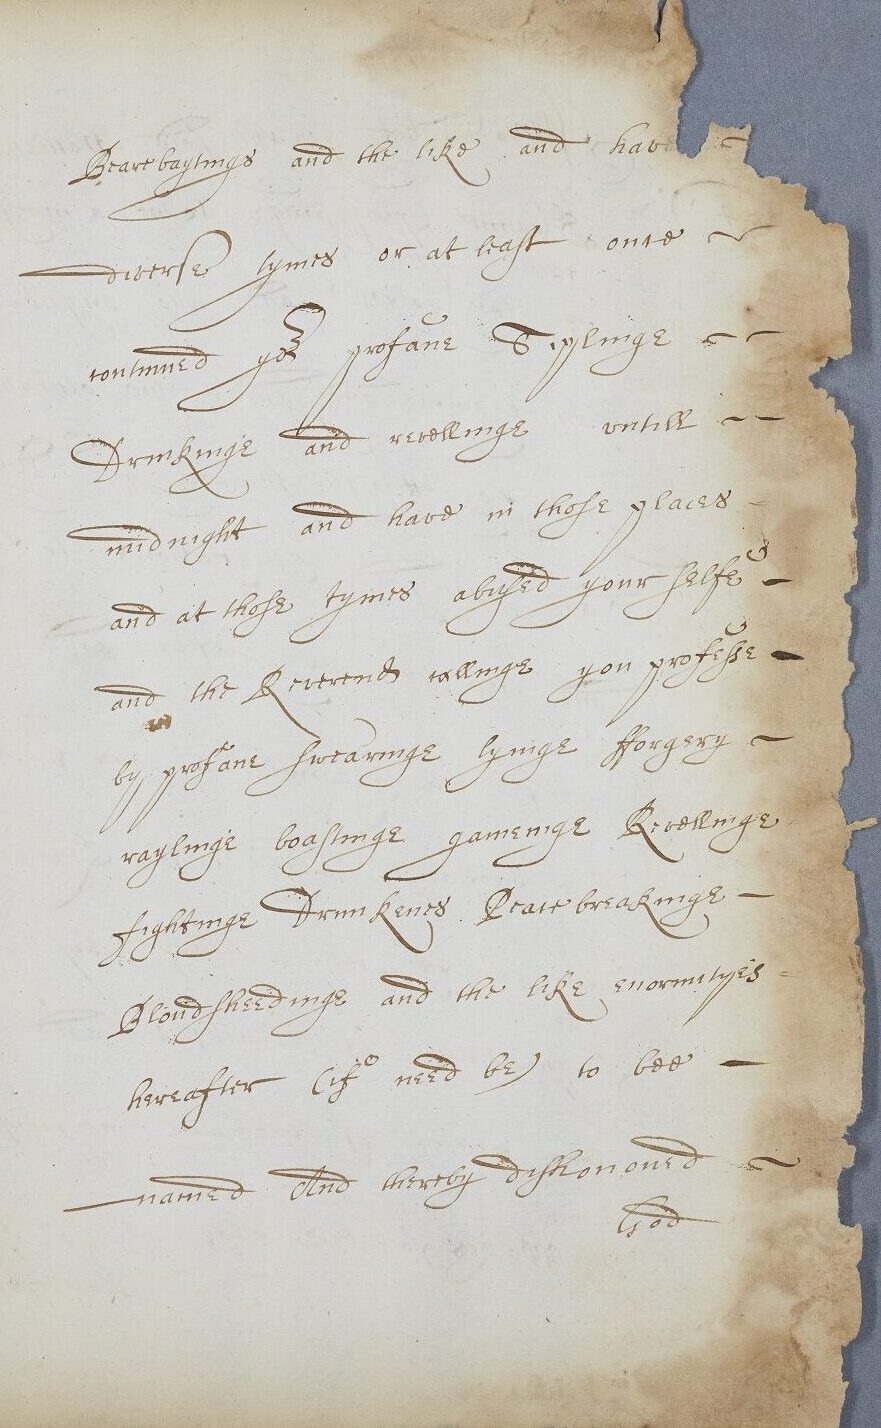 Bearebaytings and the like and have
diverse tymes or at least once
continued yor profane Tiplinge
Drinkinge and revellinge untill
midnight and have in those places
and at those tymes abused your selfe
and the Reverend callinge you professe
by profane swearinge lyinge fforgery
raylinge boastinge gameinge Revellinge
fightinge Drunkenes Peacebreakinge
Bloudsheedinge and the like enormityes
hereafter (if need be) to bee
named And thereby dishonoured
God